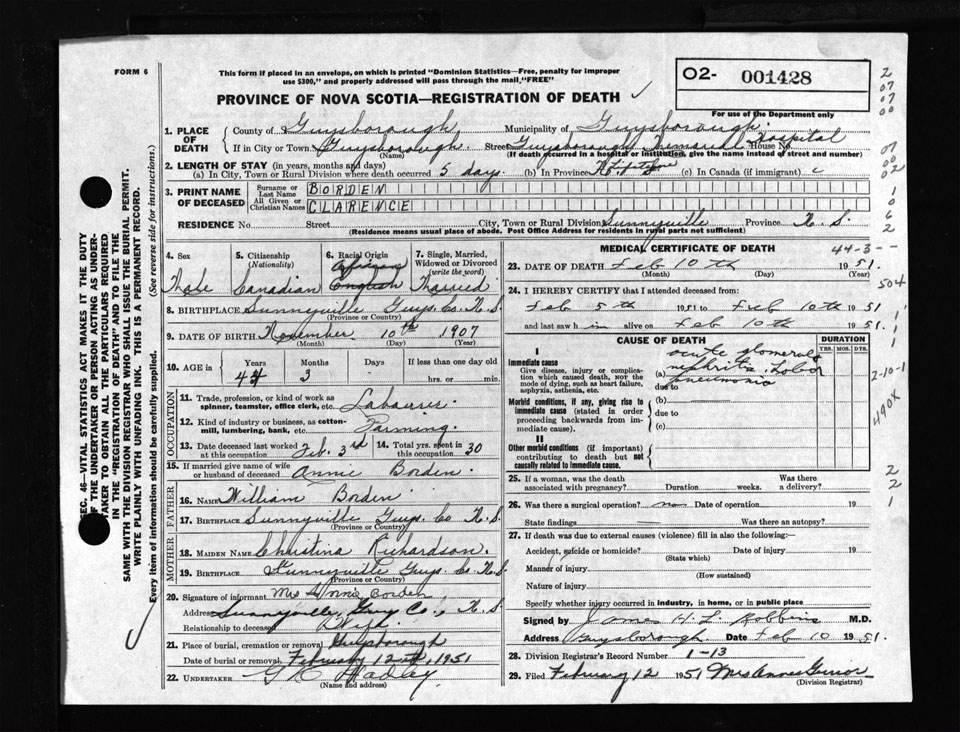 FORM 6
This form if placed in an envelope, on which is printed "Dominion Statistics—Free, penalty for improper
use $300," and properly addressed will pass through the mail, "FREE"
O2- 001428
For use of the Department only
PROVINCE OF NOVA SCOTIA—REGISTRATION OF DEATH
1. PLACE OF DEATH
County of Guysborough, Municipality of Guysborough.
If in City or Town Guysborough. Street Guysborough Memorial Hospital House No.
(Name) (If death occurred in a hospital or institution, give the name instead of street and number)
2. LENGTH OF STAY (in years, months and days)
(a) In City, Town or Rural Division where death occurred 5 days. (b) In Province Lifetime (c) In Canada (if immigrant)
3. PRINT NAME OF DECEASED
Surname or Last Name BORDEN
All Given or Christian Names CLARENCE
RESIDENCE No. Street City, Town or Rural Division Sunnyville Province N. S.
(Residence means usual place of abode. Post Office Address for residents in rural parts not sufficient)
4. Sex Male
5. Citizenship (Nationality) Canadian
6. Racial Origin African English
7. Single, Married, Widowed or Divorced (write the word) Married
8. BIRTHPLACE Sunnyville Guys. Co. N. S.
(Province or Country)
9. DATE OF BIRTH November 10th 1907
(Month) (Day) (Year)
10. AGE in Years Months Days If less than one day old
3 hrs. or min.
OCCUPATION
11. Trade, profession, or kind of work as spinner, teamster, office clerk, etc. Labourer
12. Kind of industry or business, as cotton-mill, lumbering, bank, etc. Farming.
13. Date deceased last worked at this occupation Feb. 3rd
14. Total yrs. spent in this occupation 30
15. If married give name of wife or husband of deceased Annie Borden.
FATHER
16. NAME William Borden
17. BIRTHPLACE Sunnyville Guys. Co N. S.
(Province or Country)
MOTHER
18. MAIDEN NAME Christina Richardson.
19. BIRTHPLACE Sunnyville Guys. Co. N. S.
(Province or Country)
20. Signature of informant Mrs Annie Borden
Address Sunnyville, Guy Co., N. S
Relationship to deceased Wife.
21. Place of burial, cremation or removal Guysborough
Date of burial or removal February 12th, 1951
22. UNDERTAKER Hadley
(Name and address)
MEDICAL CERTIFICATE OF DEATH
44-3--
23. DATE OF DEATH Feb 10th 1951.
(Month) (Day) (Year)
24. I HEREBY CERTIFY that I attended deceased from:
Feb 5th 1951 to Feb 10th 1951
and last saw him alive on Feb 10th 1951.
CAUSE OF DEATH
DURATION
YRS. MOS. DYS.
I
Immediate cause
Give disease, injury or complication which caused death, not the mode of dying, such as heart failure, asphyxia, asthenia, etc.
(a) acute glomerulo nephritis. Lobar pneumonia
due to
Morbid conditions, if any, giving rise to immediate cause (stated in order proceeding backwards from immediate cause).
(b)
due to
(c)
II
Other morbid conditions (if important) contributing to death but not causally related to immediate cause.
25. If a woman, was the death associated with pregnancy? Duration weeks. Was there a delivery?
26. Was there a surgical operation? no Date of operation. 19
State findings Was there an autopsy?
27. If death was due to external causes (violence) fill in also the following:—
Accident, suicide or homicide? Date of injury 19
(State which)
Manner of injury
(How sustained)
Nature of injury
Specify whether injury occurred in industry, in home, or in public place
Signed by James H. L. Robbins M.D.
Address Guysborough Date Feb 10 1951.
28. Division Registrar's Record Number 1-13
29. Filed February 12 1951 Mrs
(Division Registrar)
2
07
07
00
07
00
02
1
0
6
2
504
1
1
2-10-1
490X
2
2
1
SEC. 46—VITAL STATISTICS ACT MAKES IT THE DUTY
OF THE UNDERTAKER OR PERSON ACTING AS UNDER-
TAKER TO OBTAIN ALL THE PARTICULARS REQUIRED
IN THE "REGISTRATION OF DEATH" AND TO FILE THE
SAME WITH THE DIVISION REGISTRAR WHO SHALL ISSUE THE BURIAL PERMIT.
WRITE PLAINLY WITH UNFADING INK. THIS IS A PERMANENT RECORD.
Every item of information should be carefully supplied. (See reverse side for instructions.)